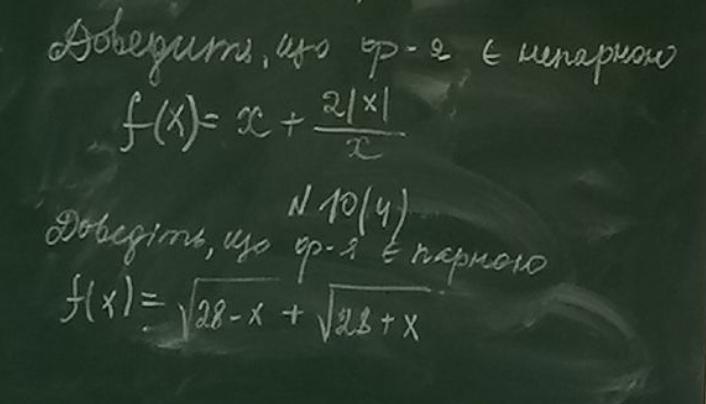 Доведить, що ф-я є непарною
f(x) = x + 2|x|/x
N 10(4)
Доведіть, що ф-я є парною
f(x) = √28-x + √28+x